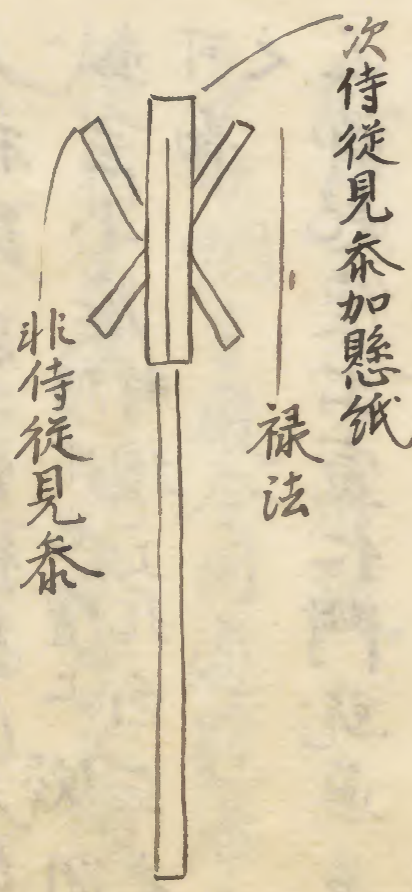 次侍従見条加懸紙
禄法
非侍従見条